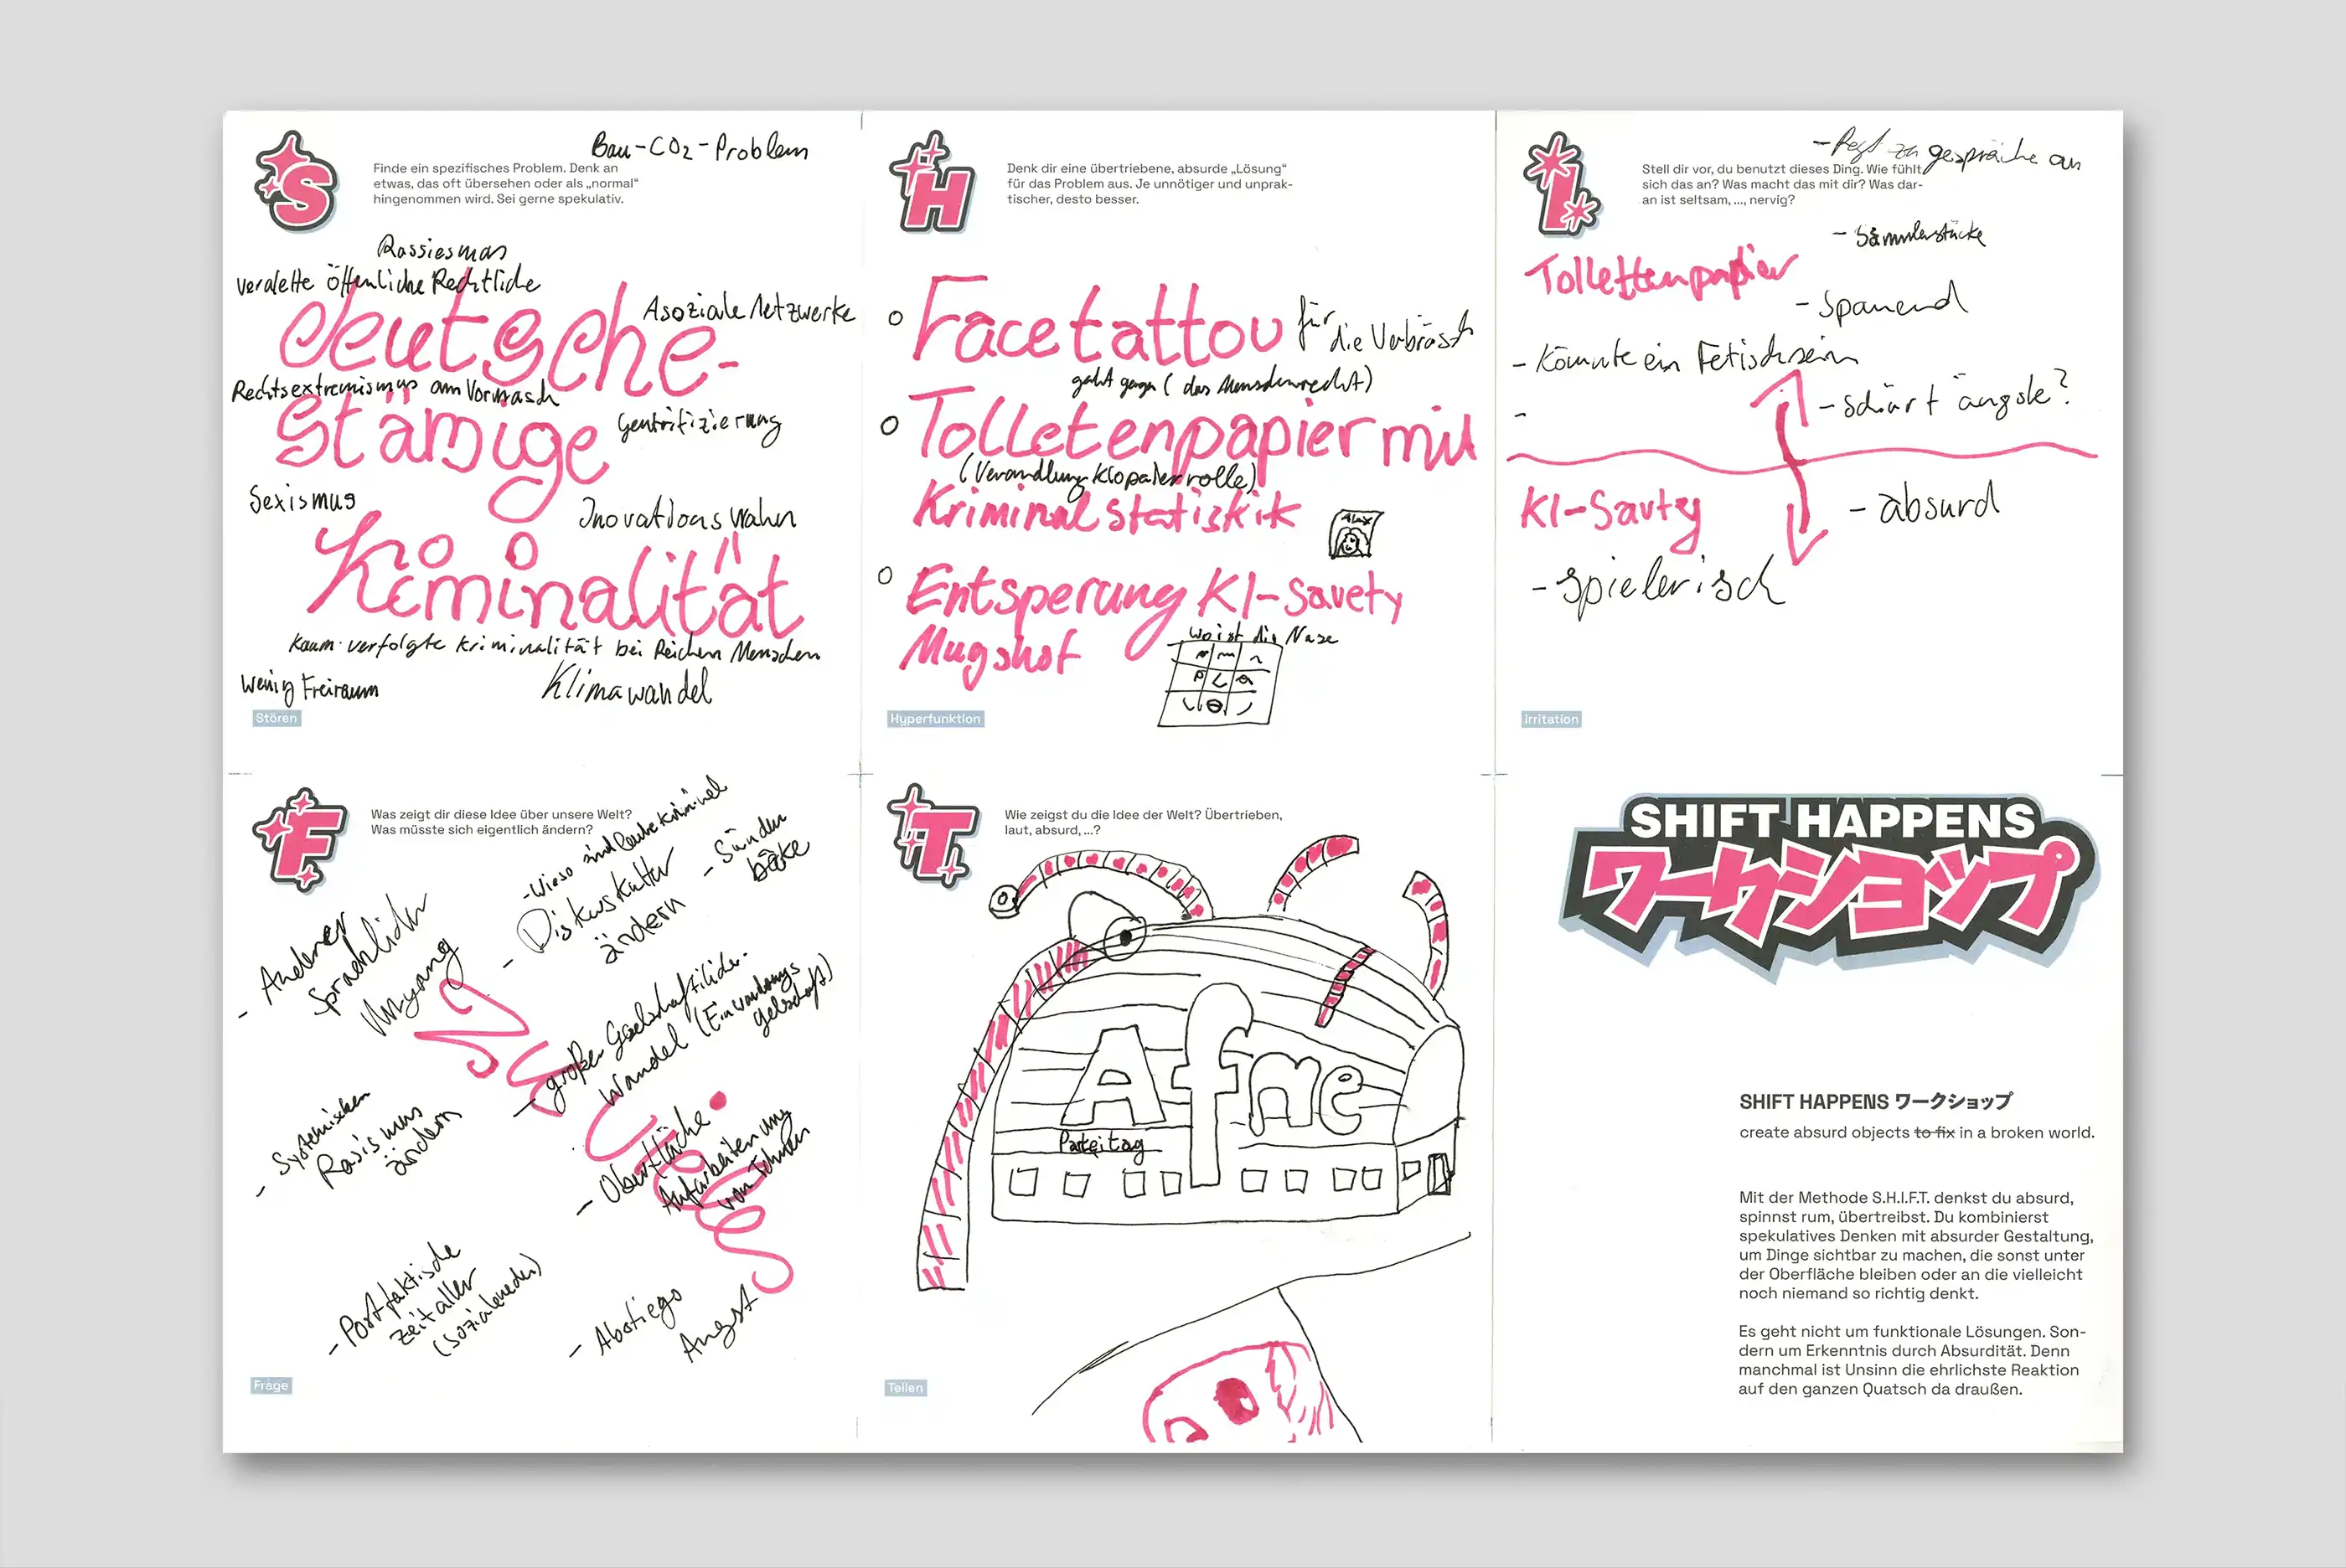 S
Bau-CO2-Problem
Finde ein spezifisches Problem. Denk an
etwas, das oft übersehen oder als „normal“
hingenommen wird. Sei gerne spekulativ.
Rassiesmas
veraltete öffenliche Rechtliche
Asoziale Netzwerke
deutsche-
Rechtsextremismus am Vormasch
stämige
Gentrifizierung
Sexismus
Inovations Wahn
Kriminalität
Kaum verfolgte kriminalität bei Reichen Menschen
Wenig Freiraum
Klimawandel
Stören
H
Denk dir eine übertriebene, absurde „Lösung“
für das Problem aus. Je unnötiger und unprak-
tischer, desto besser.
Facetattou für
die
geht gegen (das Menschenrecht)
Tolletenpapier mit
Kriminalstatiskik
Alex
Entsperung KI-Savety
Mugshot
wo ist die Nase
Hyperfunktion
I
- Regt zu gespräche an
Stell dir vor, du benutzt dieses Ding. Wie fühlt
sich das an? Was macht das mit dir? Was dar-
an ist seltsam, ..., nervig?
- Sammlerstücke
Tollettenpapier
- Spanend
- Könnte ein Fetisch sein
- schürt ängste?
-
KI-Savty
- absurd
- spielerisch
Irritation
F
Was zeigt dir diese Idee über unsere Welt?
Was müsste sich eigentlich ändern?
- Wieso sind Leute kriminel
- Sünden
böke
- Diskuskultur
ändern
- Anderer
sprachlicher
Umgang
- großer Geselschaftlicher
Wandel (Einwanderungs
gelschaft)
- Systemischen
Rasismus
ändern
- Oberfläche
Aufarbeiten und
von
- Postfaktische
zeitalter
(sozialemedien)
- Abstiegs
Angst
Frage
T
Wie zeigst du die Idee der Welt? Übertrieben,
laut, absurd, ...?
Afne
Parteitag
Teilen
SHIFT HAPPENS
ワークショップ
SHIFT HAPPENS ワークショップ
create absurd objects to fix in a broken world.
Mit der Methode S.H.I.F.T. denkst du absurd,
spinnst rum, übertreibst. Du kombinierst
spekulatives Denken mit absurder Gestaltung,
um Dinge sichtbar zu machen, die sonst unter
der Oberfläche bleiben oder an die vielleicht
noch niemand so richtig denkt.
Es geht nicht um funktionale Lösungen. Son-
dern um Erkenntnis durch Absurdität. Denn
manchmal ist Unsinn die ehrlichste Reaktion
auf den ganzen Quatsch da draußen.